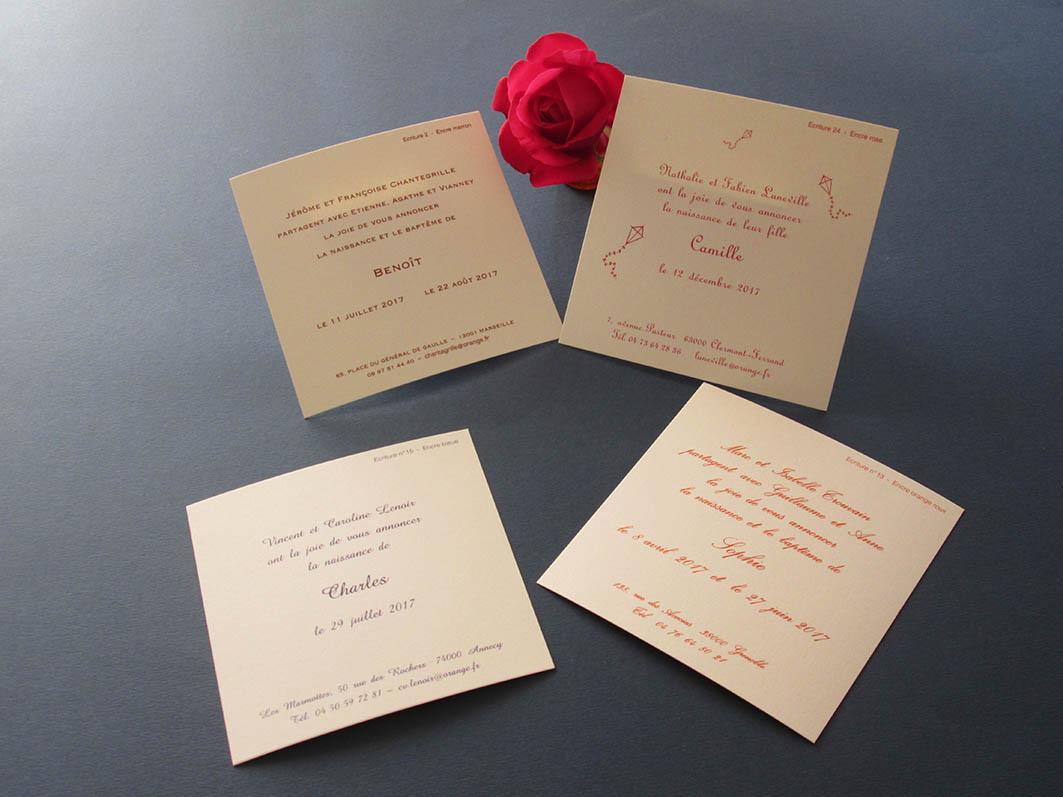 Ecriture 2 - Encre marron
Jérôme et Françoise Chantegrille
partagent avec Etienne, Agathe et Vianney
la joie de vous annoncer
la naissance et le baptême de
Benoît
le 11 juillet 2017 le 22 août 2017
65, place du Général de Gaulle – 13001 Marseille
09 97 81 44 40 – chantegrille@orange.fr
Ecriture 24 - Encre rose
Nathalie et Fabien Luneville
ont la joie de vous annoncer
la naissance de leur fille
Camille
le 12 décembre 2017
7, avenue Pasteur 63000 Clermont-Ferrand
Tél. 04 73 64 28 36 luneville@orange.fr
Ecriture n°15 - Encre bleue
Vincent et Caroline Lenoir
ont la joie de vous annoncer
la naissance de
Charles
le 29 juillet 2017
Les Marmottes, 50 rue des Rochers 74000 Annecy
Tél. 04 50 59 72 81 – cv.lenoir@orange.fr
Ecriture n°13 - Encre orange roux
Marc et Isabelle Trouvain
partagent avec Guillaume et Anne
la joie de vous annoncer
la naissance et le baptême de
Sophie
le 8 avril 2017 et le 27 juin 2017
rue des 38000 Grenoble
Tél. 04 76 64 50 21